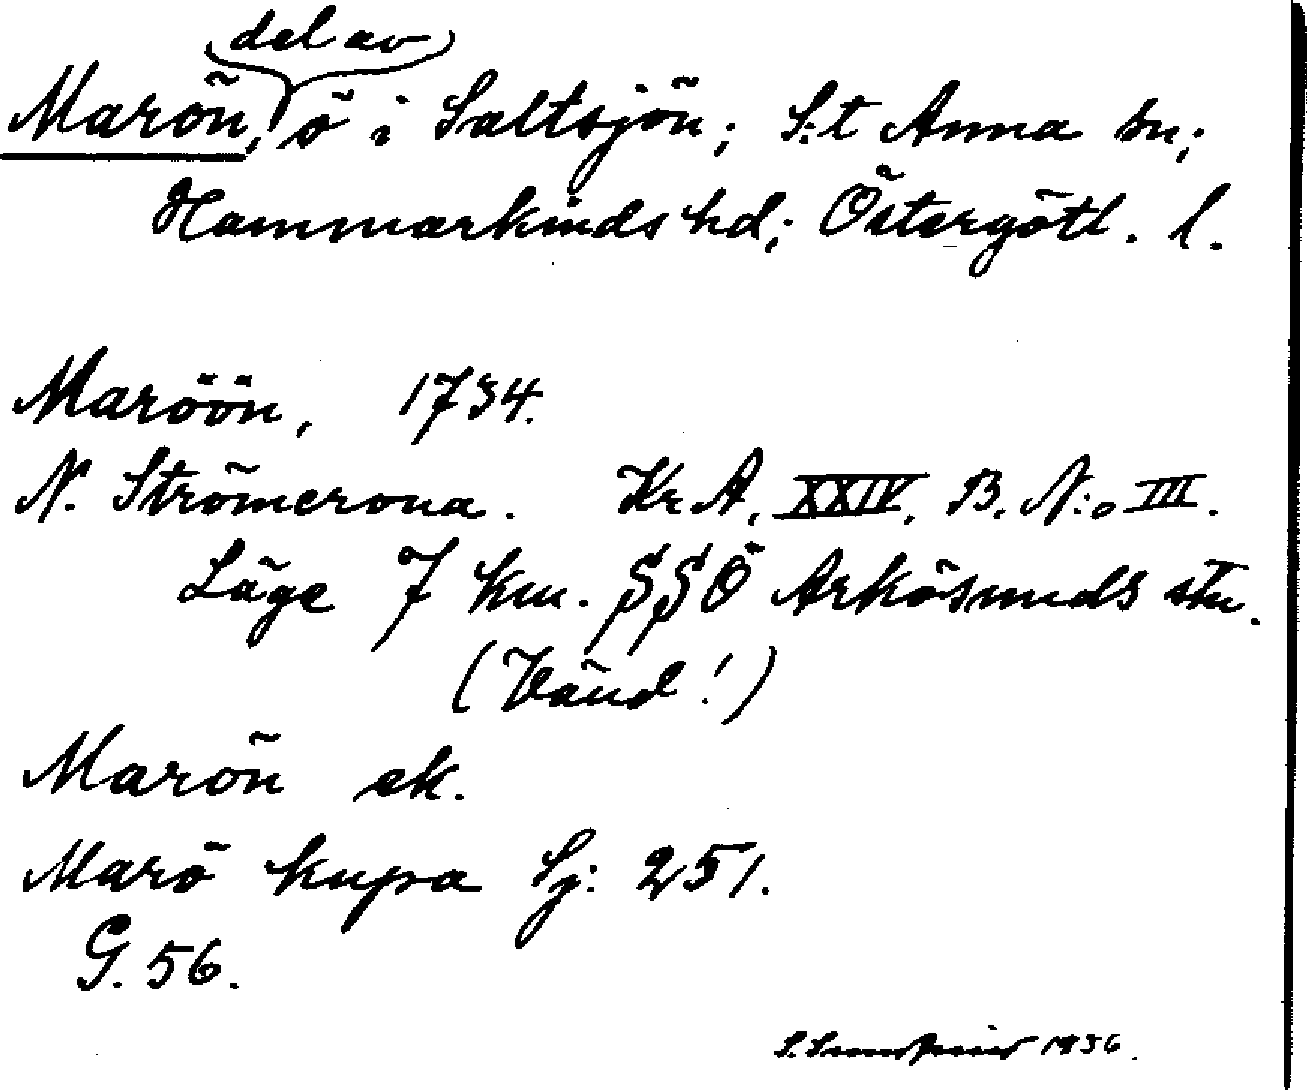 del av
Marön, ö i Saltsjön; S:t Anna sn;
Hammarkinds hd; Östergötl. l.
Maröön, 1734.
N. Strömcrona. Kr. A. XXIV. B. N:o III.
Läge 7 km. SSÖ Arkösunds stn.
(Vänd!)
Marön ek.
Marö kupa Sj: 251.
G. 56.
S. 1936.